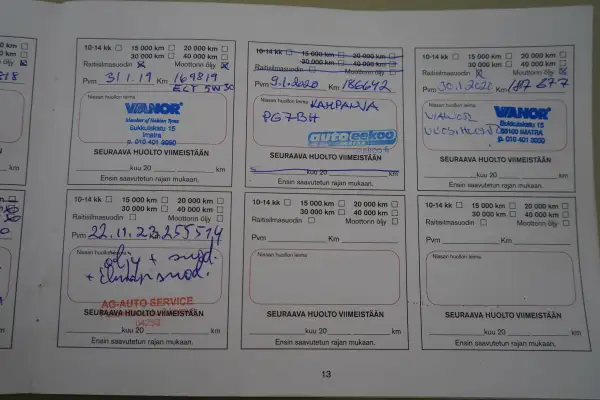 0 km ☐
0 km ☐
öljy ☒
818
km
km
10-14 kk ☐ 15 000 km ☐ 20 000 km ☐
30 000 km ☐ 40 000 km ☐
Raitisilmasuodin ☒ Moottorin öljy ☒
Pvm 31.1.19 Km 169819
EGT 5W30
Nissan huollon leima
VIANOR
Member of Nokian Tyres
Sukkulakatu 15
Imatra
p. 010 401 3050
SEURAAVA HUOLTO VIIMEISTÄÄN
kuu 20 km
Ensin saavutetun rajan mukaan.
10-14 kk ☐ 15 000 km ☐ 20 000 km ☐
30 000 km ☐ 40 000 km ☐
Raitisilmasuodin ☐ Moottorin öljy ☐
Pvm 9.1.2020 Km 186642
Nissan huollon leima KAMPANJA
PG7BH
autoeekoo
SEURAAVA HUOLTO VIIMEISTÄÄN
kuu 20 km
Ensin saavutetun rajan mukaan.
10-14 kk ☐ 15 000 km ☐ 20 000 km ☐
30 000 km ☐ 40 000 km ☐
Raitisilmasuodin ☒ Moottorin öljy ☒
Pvm 30.1.2020 Km 187677
Nissan huollon leima
VIANOR
Sukkulakatu 15
55100 IMATRA
p. 010 401 3050
SEURAAVA HUOLTO VIIMEISTÄÄN
kuu 20 km
Ensin saavutetun rajan mukaan.
10-14 kk ☐ 15 000 km ☐ 20 000 km ☐
30 000 km ☐ 40 000 km ☐
Raitisilmasuodin ☐ Moottorin öljy ☐
Pvm 22.11.23 255514
Nissan huollon leima
öljy + suod.
+ ilmansuod.
AG-AUTO SERVICE
SEURAAVA HUOLTO VIIMEISTÄÄN
kuu 20 km
Ensin saavutetun rajan mukaan.
10-14 kk ☐ 15 000 km ☐ 20 000 km ☐
30 000 km ☐ 40 000 km ☐
Raitisilmasuodin ☐ Moottorin öljy ☐
Pvm Km
Nissan huollon leima
SEURAAVA HUOLTO VIIMEISTÄÄN
kuu 20 km
Ensin saavutetun rajan mukaan.
10-14 kk ☐ 15 000 km ☐ 20 000 km ☐
30 000 km ☐ 40 000 km ☐
Raitisilmasuodin ☐ Moottorin öljy ☐
Pvm Km
Nissan huollon leima
SEURAAVA HUOLTO VIIMEISTÄÄN
kuu 20 km
Ensin saavutetun rajan mukaan.
13